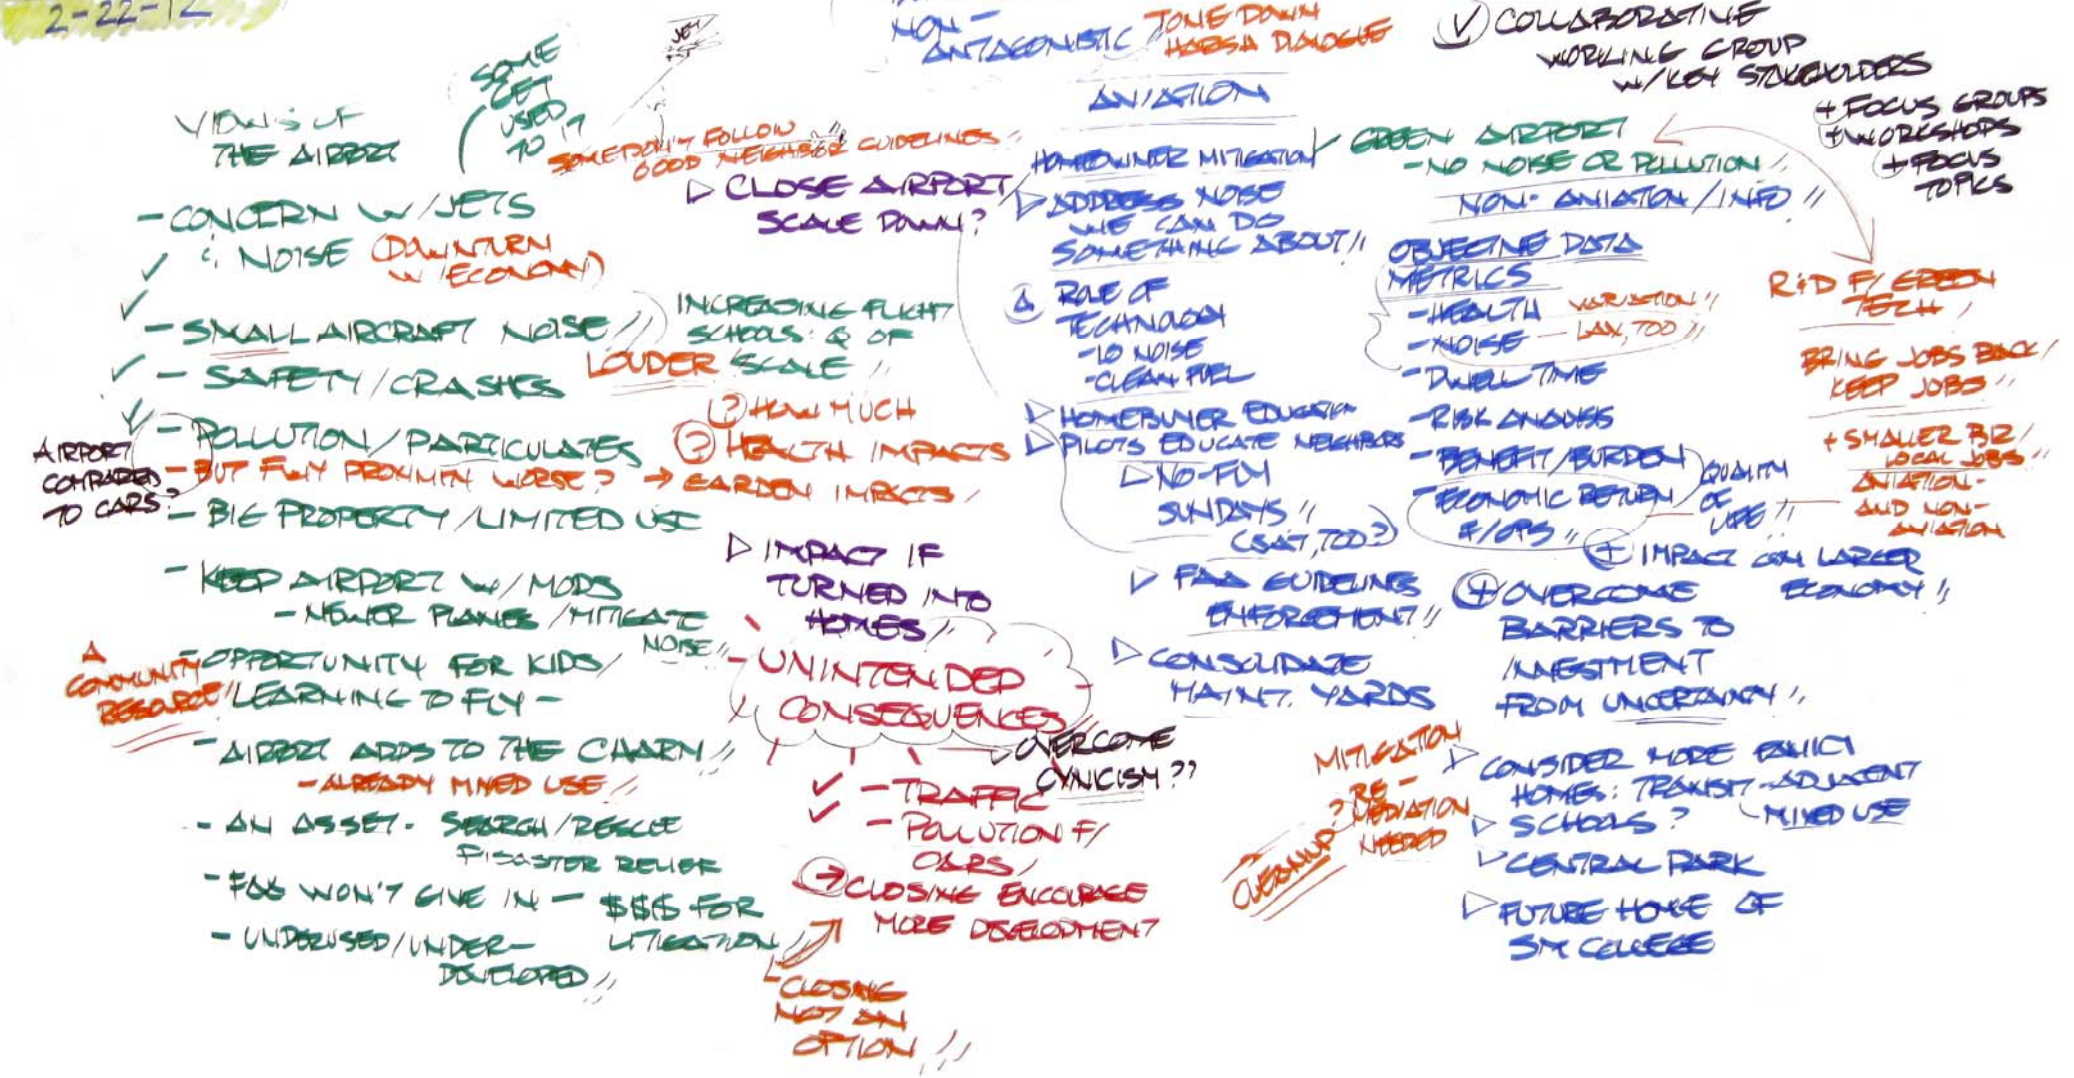 2-22-12
VIEWS OF
THE AIRPORT
SOME
GET
USED
TO IT
JET
SOME DON'T FOLLOW
GOOD NEIGHBOR GUIDELINES
- CONCERN W/JETS
& NOISE (DOWNTURN
W/ECONOMY)
- SMALL AIRCRAFT NOISE
INCREASING FLIGHT
SCHOOLS: Q OF
LOUDER SCALE
- SAFETY/CRASHES
- POLLUTION/PARTICULATES
AIRPORT
COMPARED
TO CARS?
- BUT FWY PROXIMITY WORSE?
? HOW MUCH
? HEALTH IMPACTS
→ GARDEN IMPACTS
- BIG PROPERTY/LIMITED USE
- KEEP AIRPORT W/MODS
- NEWER PLANES/MITIGATE
NOISE
- OPPORTUNITY FOR KIDS/
LEARNING TO FLY -
A
COMMUNITY
RESOURCE
- AIRPORT ADDS TO THE CHARM
- ALREADY MIXED USE
- AN ASSET - SEARCH/RESCUE
DISASTER RELIEF
- FAA WON'T GIVE IN - $$$ FOR
LITIGATION
- UNDERUSED/UNDER-
DEVELOPED
CLOSE AIRPORT
SCALE DOWN?
IMPACT IF
TURNED INTO
HOMES
UNINTENDED
CONSEQUENCES
OVERCOME
CYNICISM??
- TRAFFIC
- POLLUTION F/
CARS
→ CLOSING ENCOURAGE
MORE DEVELOPMENT
CLOSING
NOT AN
OPTION
NON-
ANTAGONISTIC
TONE DOWN
HARSH DIALOGUE
AVIATION
HOMEOWNER MITIGATION
ADDRESS NOISE
WE CAN DO
SOMETHING ABOUT
ROLE OF
TECHNOLOGY
- LO NOISE
- CLEAN FUEL
HOMEBUYER EDUCATION
PILOTS EDUCATE NEIGHBORS
NO-FLY
SUNDAYS
(SAT, TOO?)
FAA GUIDELINES
ENFORCEMENT
CONSOLIDATE
MAINT. YARDS
COLLABORATIVE
WORKING GROUP
W/KEY STAKEHOLDERS
+ FOCUS GROUPS
+ WORKSHOPS
+ FOCUS
TOPICS
GREEN AIRPORT
- NO NOISE OR POLLUTION
NON-AVIATION/INFO
OBJECTIVE DATA
METRICS
- HEALTH
- NOISE
VARIATION
LAX, TOO
- DWELL TIME
- RISK ANALYSIS
- BENEFIT/BURDEN
- ECONOMIC RETURN
F/OPS
QUALITY
OF
LIFE
+ IMPACT ON LARGER
ECONOMY
+ OVERCOME
BARRIERS TO
INVESTMENT
FROM UNCERTAINTY
R&D F/GREEN
TECH
BRING JOBS BACK/
KEEP JOBS
+ SMALLER BIZ/
LOCAL JOBS
AVIATION-
AND NON-
AVIATION
MITIGATION
RE-
MEDIATION
NEEDED
CLEANUP?
CONSIDER MORE FAMILY
HOMES: TRANSIT-ADJACENT
- MIXED USE
SCHOOLS?
CENTRAL PARK
FUTURE HOME OF
SM COLLEGE